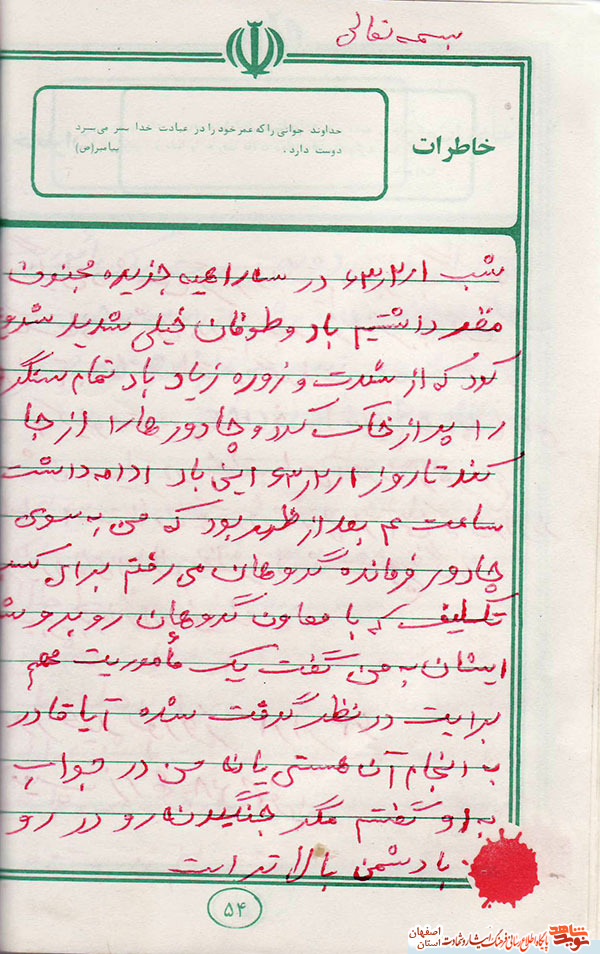 بسمه تعالی
خاطرات
خداوند جوانی را که عمر خود را در عبادت خدا بسر می برد
دوست دارد. پیامبر(ص)
شب ۶۳٫۲٫۱ در سه راهیه جزیره مجنون
مقعر داشتیم باد و طوفان خیلی شدید
بود که از شدت و زوره زیاد باد تمام سنگر
را پر از خاک کرد و چادور ها را از جا
کند تا روز ۶۳٫۲٫۱ این باد ادامه داشت
ساعت ۴ بعد از ظهر بود که من به سوی
چادور فرمانده گروهان می رفتم برای کسب
تکلیف که با معاون گروهان روبرو
ایشان به من گفت یک مأموریت مهم
برایت در نظر گرفت شده آیا قادر
به انجام آن هستی یا نه من در جواب
به او گفتم مگر جنگیدن رو در رو
با دشمن بالا تر است
۵۴
نوید شاهد
پایگاه اطلاع رسانی فرهنگ ایثار و شهادت
استان اصفهان